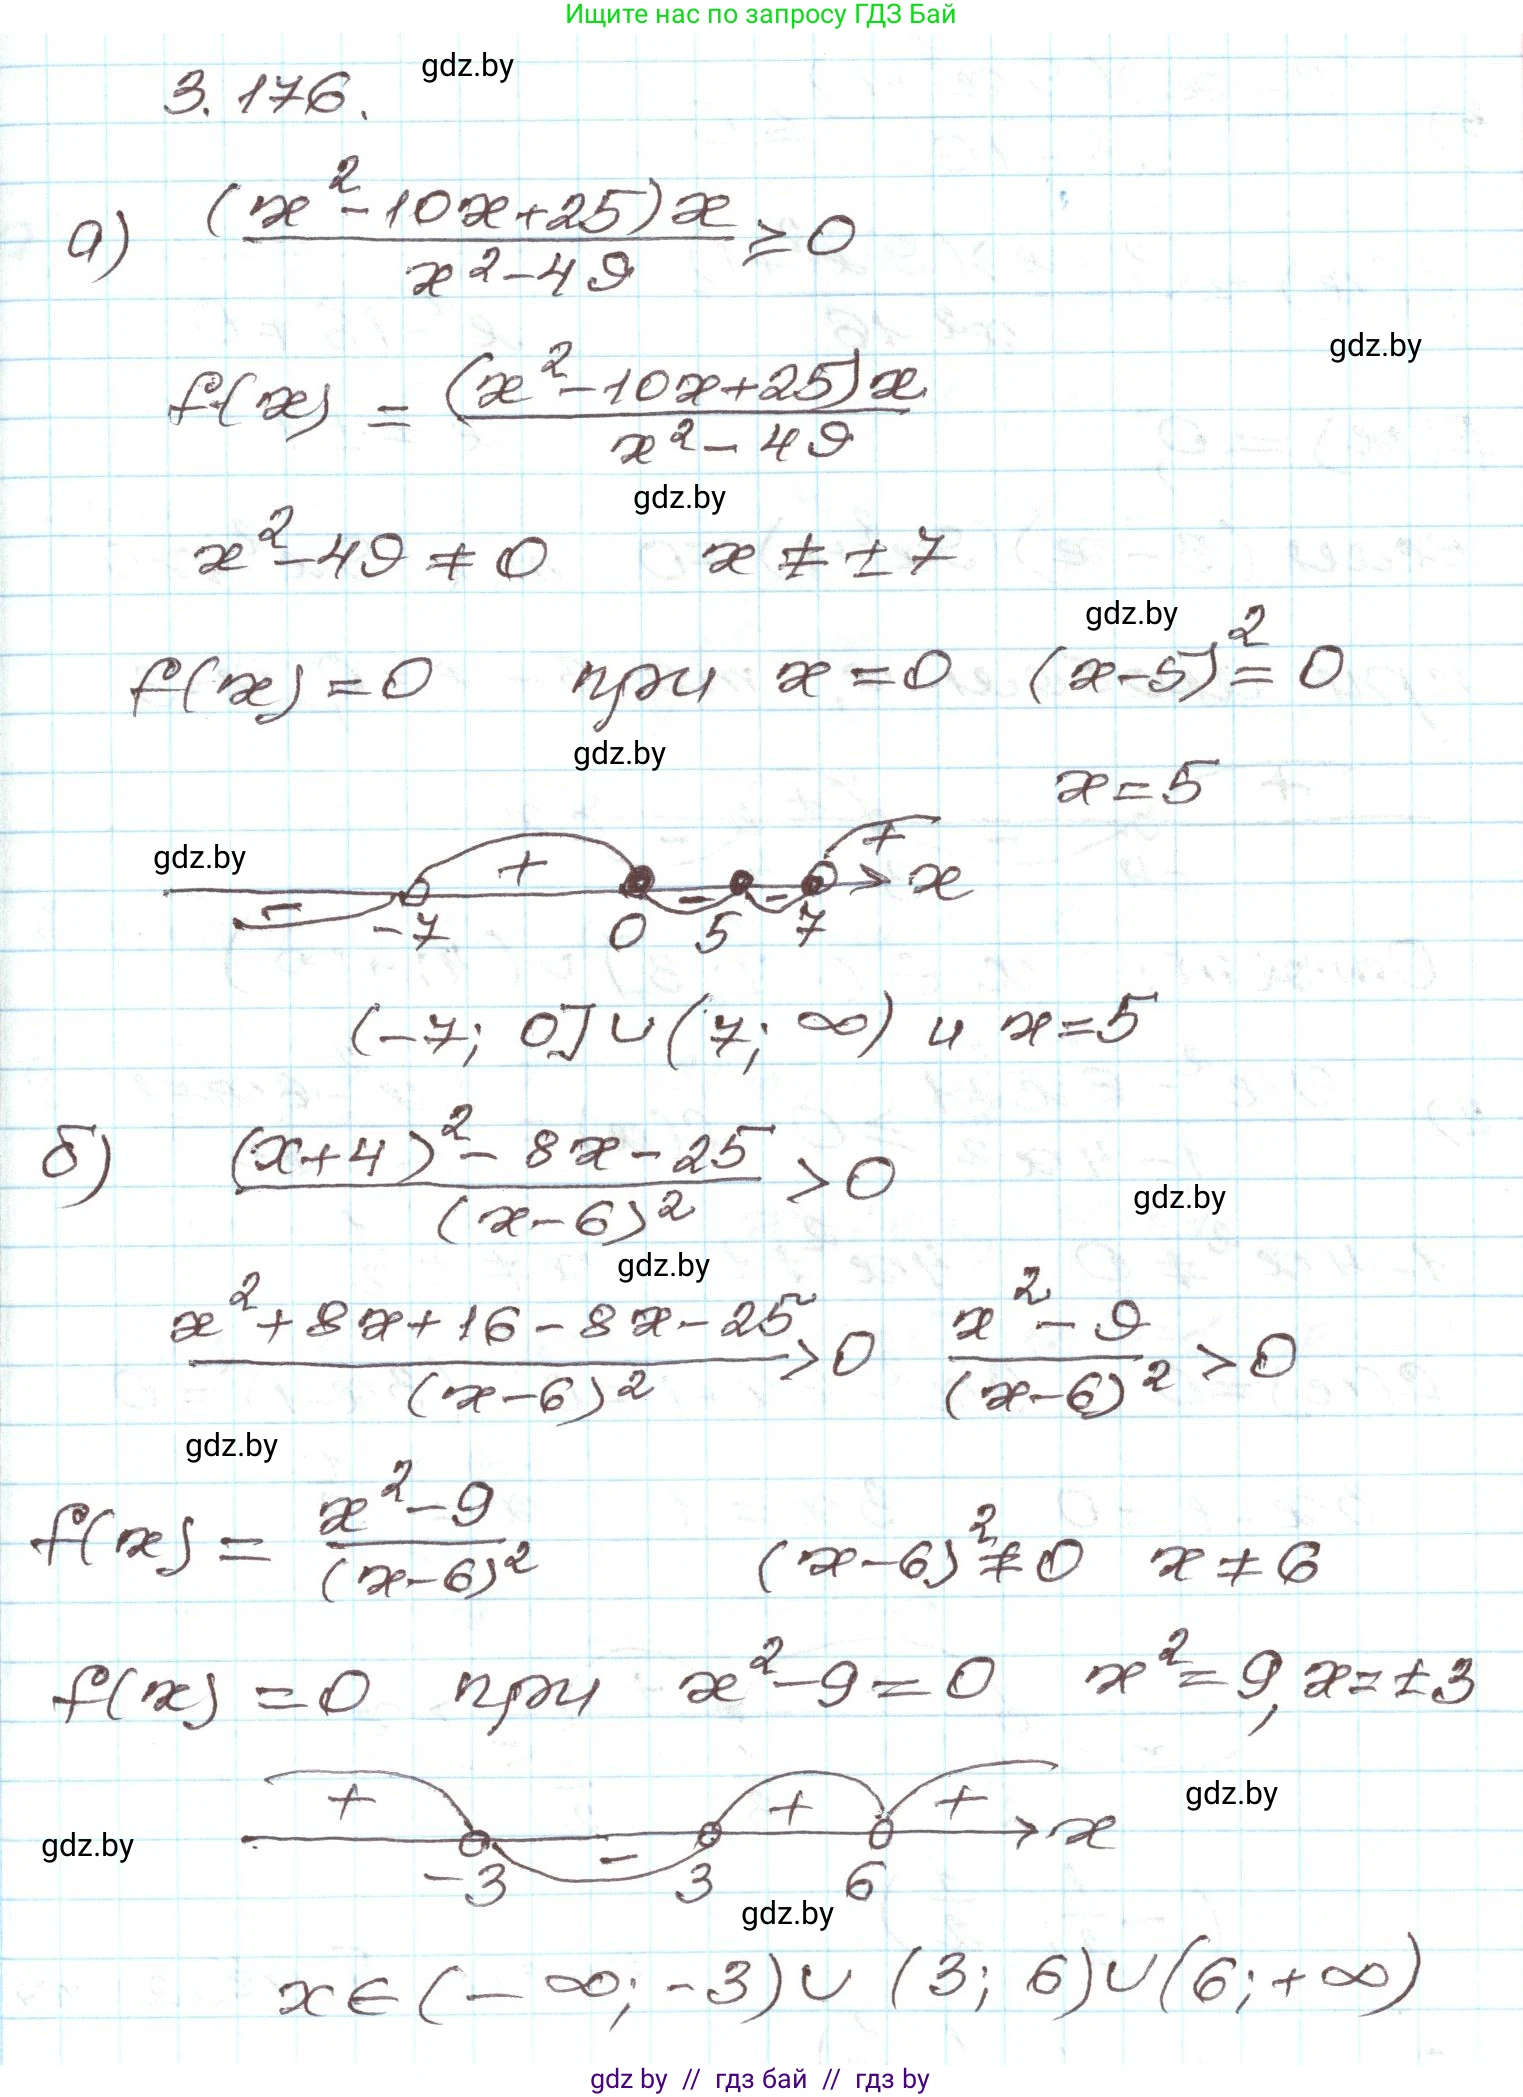 Ищите нас по запросу ГДЗ Бай
gdz.by
3.176.
а) (x²-10x+25)x / x²-49 ≥ 0
gdz.by
f(x) = (x²-10x+25)x / x²-49
gdz.by
x²-49≠0 x≠±7
gdz.by
f(x)=0 при x=0 (x-5)²=0
gdz.by
x=5
gdz.by
- + - - + x
-7 0 5 7
(-7; 0]∪(7; ∞) и x=5
б) (x+4)²-8x-25 / (x-6)² >0
gdz.by
gdz.by
x²+8x+16-8x-25 / (x-6)² >0 x²-9 / (x-6)² >0
gdz.by
f(x) = x²-9 / (x-6)² (x-6)²≠0 x≠6
f(x)=0 при x²-9=0 x²=9, x=±3
gdz.by
+ - + + x
gdz.by
-3 3 6
gdz.by
x∈(-∞; -3)∪(3; 6)∪(6; +∞)
gdz.by // гдз бай // гдз by